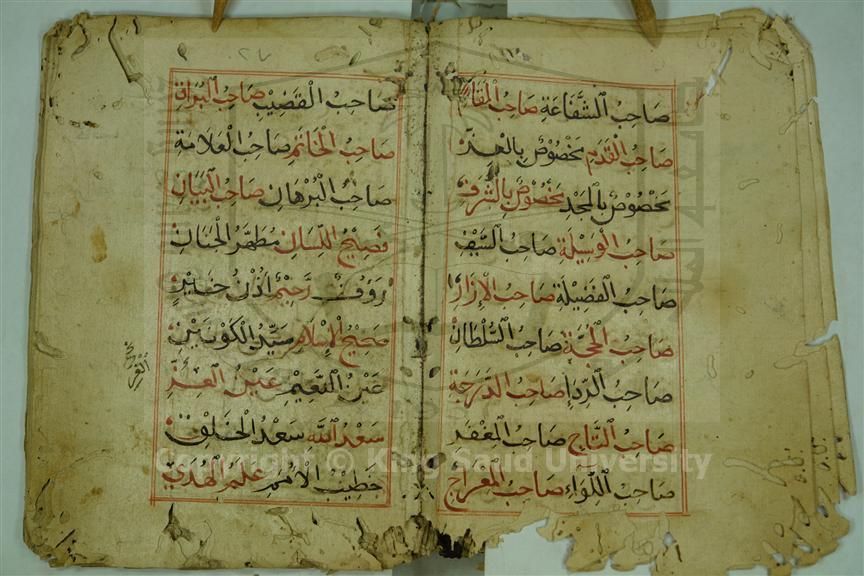 صَاحِبُ الشَّفَاعَة صَاحِبُ المَقَام
صَاحِبُ الْقَدَمِ مَخْصُوصٌ بِالْعِزِّ
مَخْصُوصٌ بِالْمَجْدِ مَخْصُوصٌ بِالشَّرَفِ
صَاحِبُ الْوَسِيلَة صَاحِبُ السَّيْفِ
صَاحِبُ الْفَضِيلَة صَاحِبُ الْإِزَارِ
صَاحِبُ الْحُجَّة صَاحِبُ السُّلْطَانِ
صَاحِبُ الرِّدَاءِ صَاحِبُ الدَّرَجَة
صَاحِبُ التَّاجِ صَاحِبُ الْمِغْفَر
صَاحِبُ اللِّوَاءِ صَاحِبُ الْمِعْرَاجِ
٢٧
صَاحِبُ الْقَضِيبِ صَاحِبُ البُرَاق
صَاحِبُ الْخَاتَمِ صَاحِبُ الْعَلَامَة
صَاحِبُ الْبُرْهَانِ صَاحِبُ الْبَيَانِ
فَصِيحُ اللِّسَانِ مُطَهَّرُ الْجَنَانِ
رَؤُوفٌ رَحِيْمٌ أُذْنُ خَيْرٍ
صَحِيحُ الْإِسْلَامِ سَيِّدُ الْكَوْنَيْنِ
عَيْنُ النَّعِيْمِ عَيْنُ الْعِزِّ
سَعْدُ اللهِ سَعْدُ الْخَلْقِ
خَطِيبُ الْأُمَمِ عَلَمُ الْهُدَي
Copyright © King Saud University